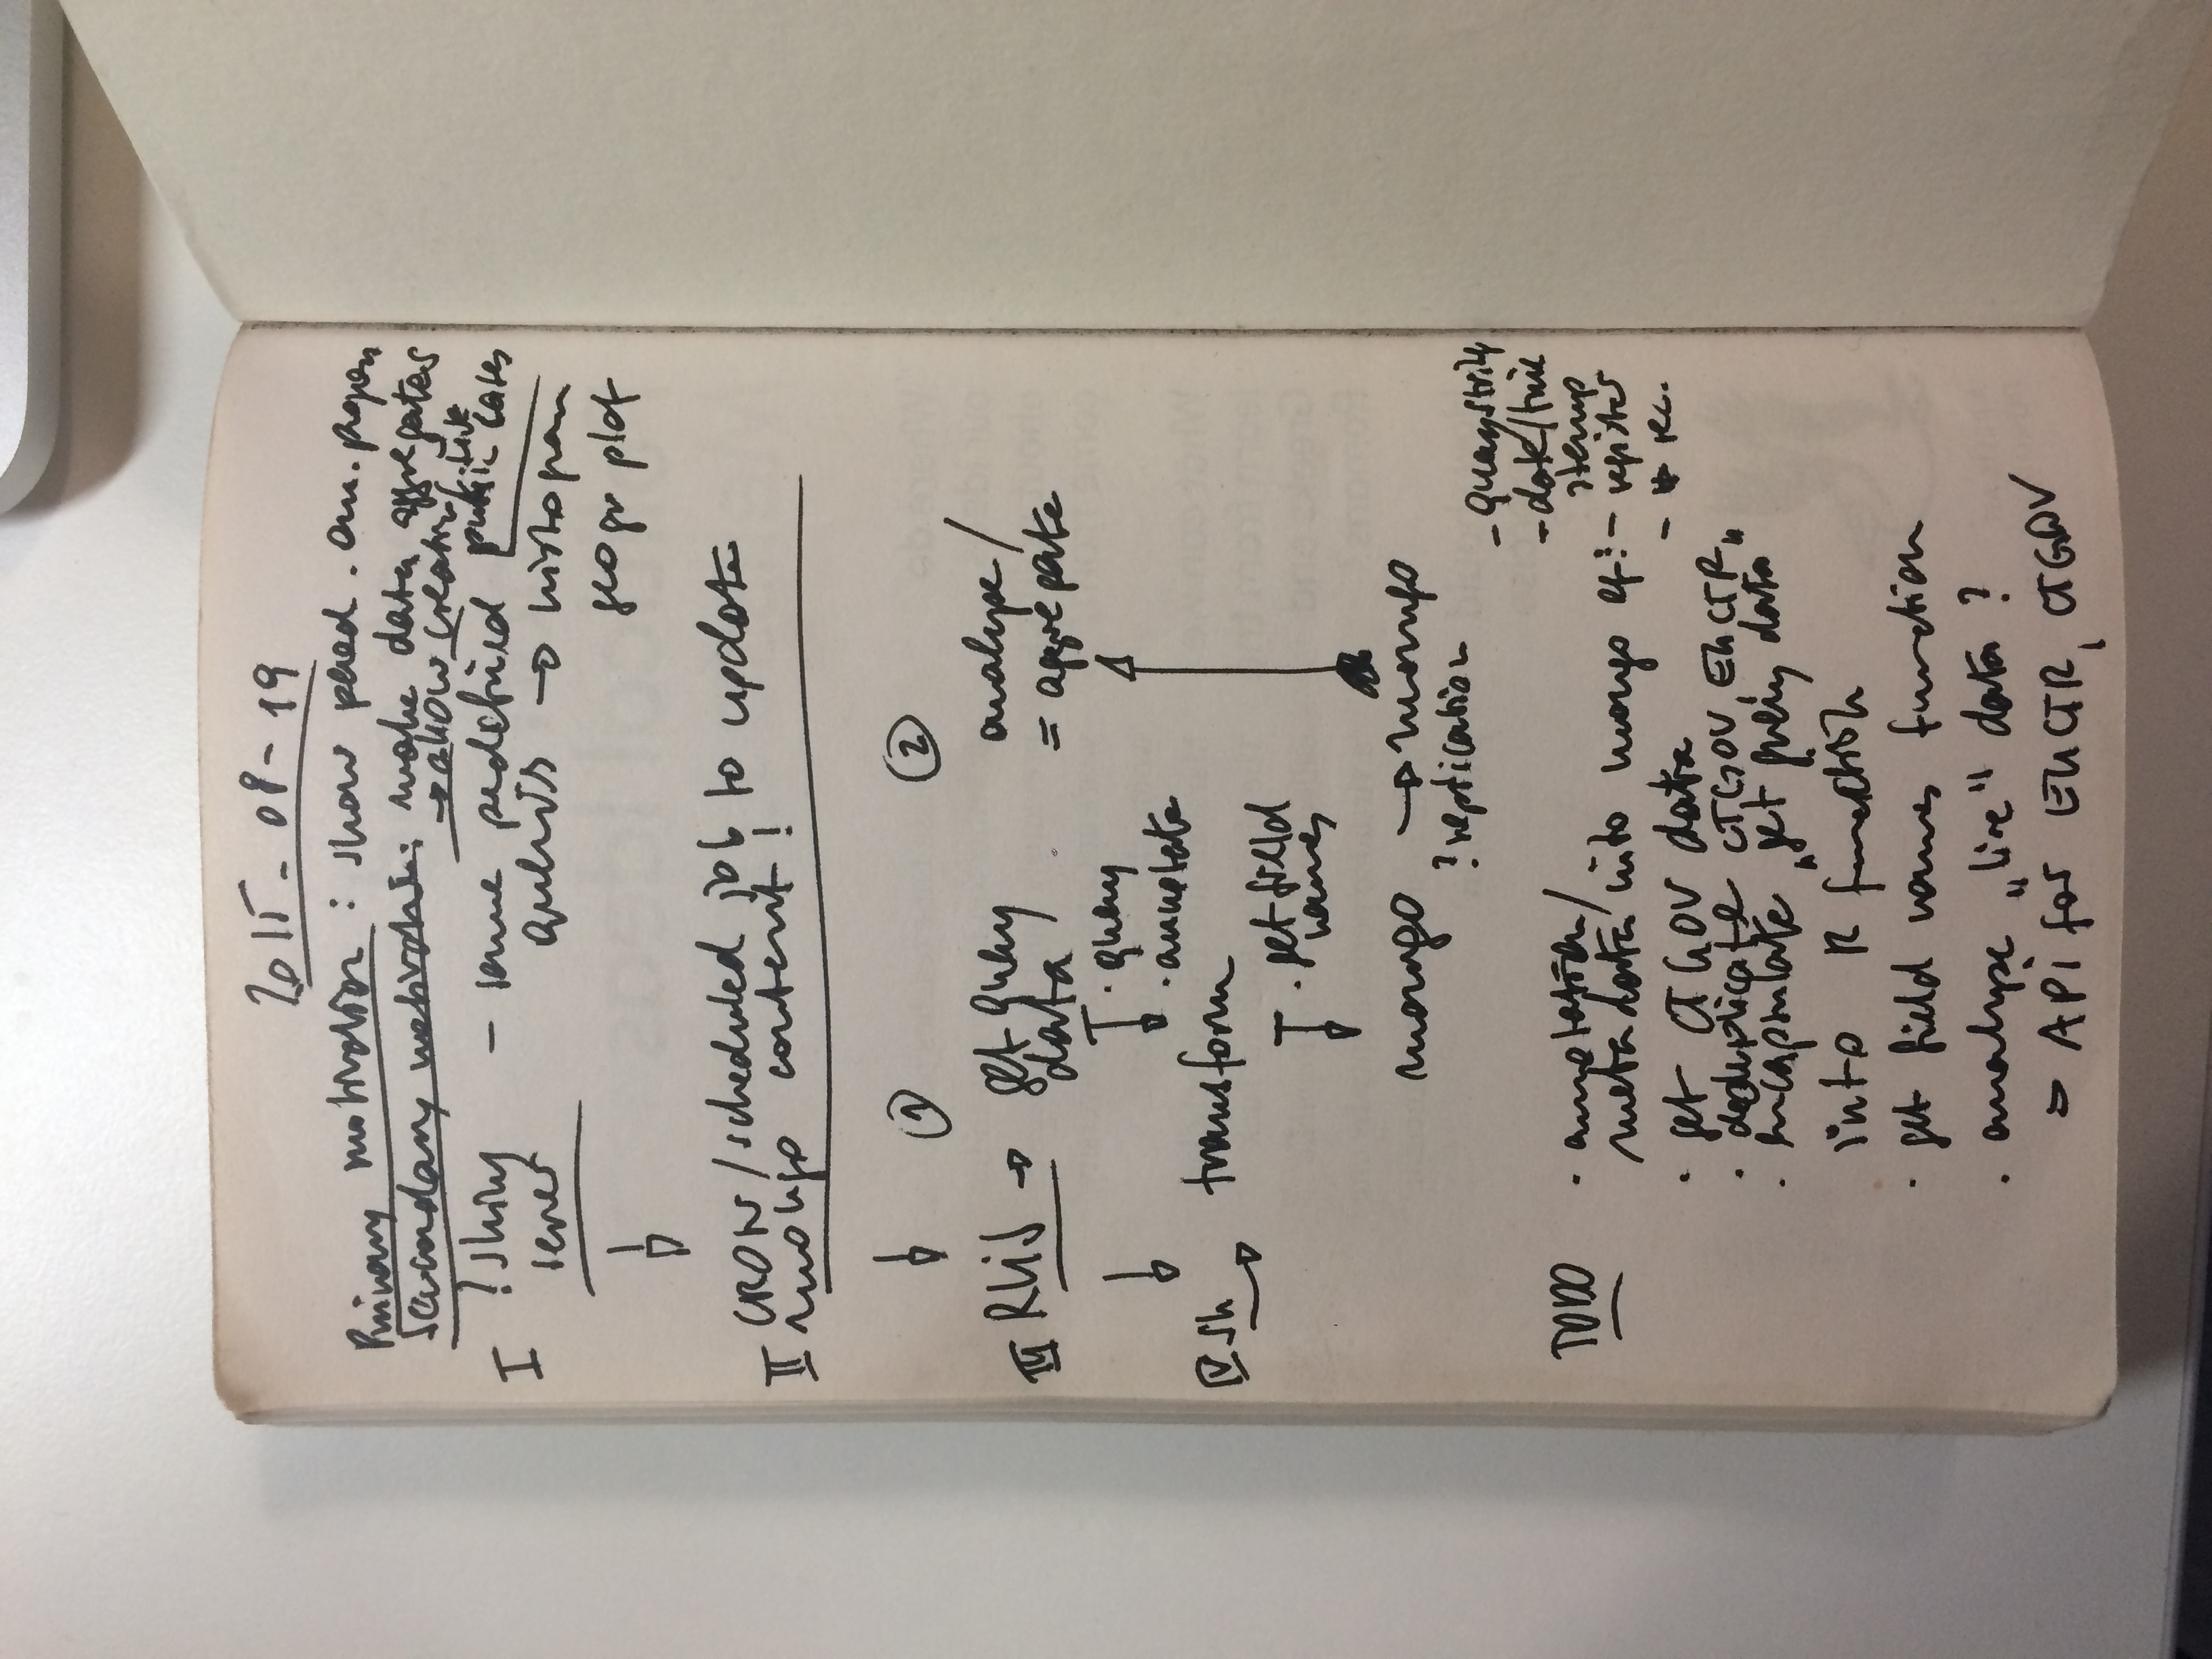 2015-08-19
Primary motivation : show paed. onc. progress
Secondary motivation: make data aggregates
→ allow creating / live
public cases
I ? shiny – some predefined
server queries → histogram
geogr plot
II CRON / scheduled job to update
mongo content !
① ②
III RUiS → get query analyse /
data = aggregate
· query
· annotate
IV sh → transform
· get field
names
mongo → mongo
? replication
- query string
- date/time
stamp
TODO · annotation /
metadata into mongo eg: - register
- # rec.
· get CTGOV data
· deduplicate CTGOV, EUCTR
· encapsulate „get query data"
into R function
· get field names function
· analyse „live" data ?
⇒ API for EUCTR, CTGOV